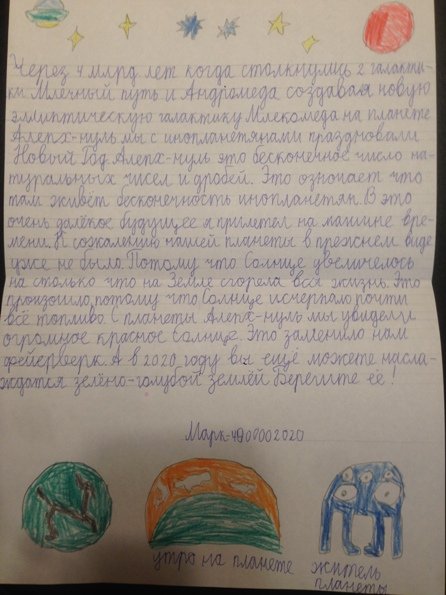 Через 4 млрд лет когда столкнулись 2 галакти-
ки Млечный путь и Андромеда создавая новую
эллиптическую галактику Млекомеда на планете
Алепх-нуль мы с инопланетянами праздновали
Новый Год. Алепх-нуль это бесконечное число на-
туральных чисел и дробей. Это означает что
там живёт бесконечность инопланетян. В это
очень далёкое будущее я прилетел на машине вре-
мени. К сожалению нашей планеты в прежнем виде
уже не было. Потому что Солнце увеличелось
на столько что на Земле сгорела вся жизнь. Это
произошло потому что Солнце исчерпало почти
всё топливо. С планеты Алепх-нуль мы увидели
огромное красное Солнце. Это заменило нам
фейерверк. А в 2020 году вы ещё можете насла-
ждатся зелёно-голубой землёй Берегите её!
Марк-4000002020
утро на планете
житель
планеты